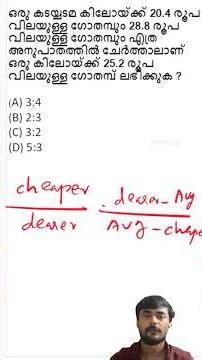 ഒരു കടയുടമ കിലോയ്ക്ക് 20.4 രൂപ
വിലയുള്ള ഗോതമ്പും 28.8 രൂപ
വിലയുള്ള ഗോതമ്പും എത്ര
അനുപാതത്തിൽ ചേർത്താലാണ്
ഒരു കിലോയ്ക്ക് 25.2 രൂപ
വിലയുള്ള ഗോതമ്പ് ലഭിക്കുക ?
(A) 3:4
(B) 2:3
(C) 3:2
(D) 5:3
cheaper
dearer - Avg
dearer
Avg - cheape